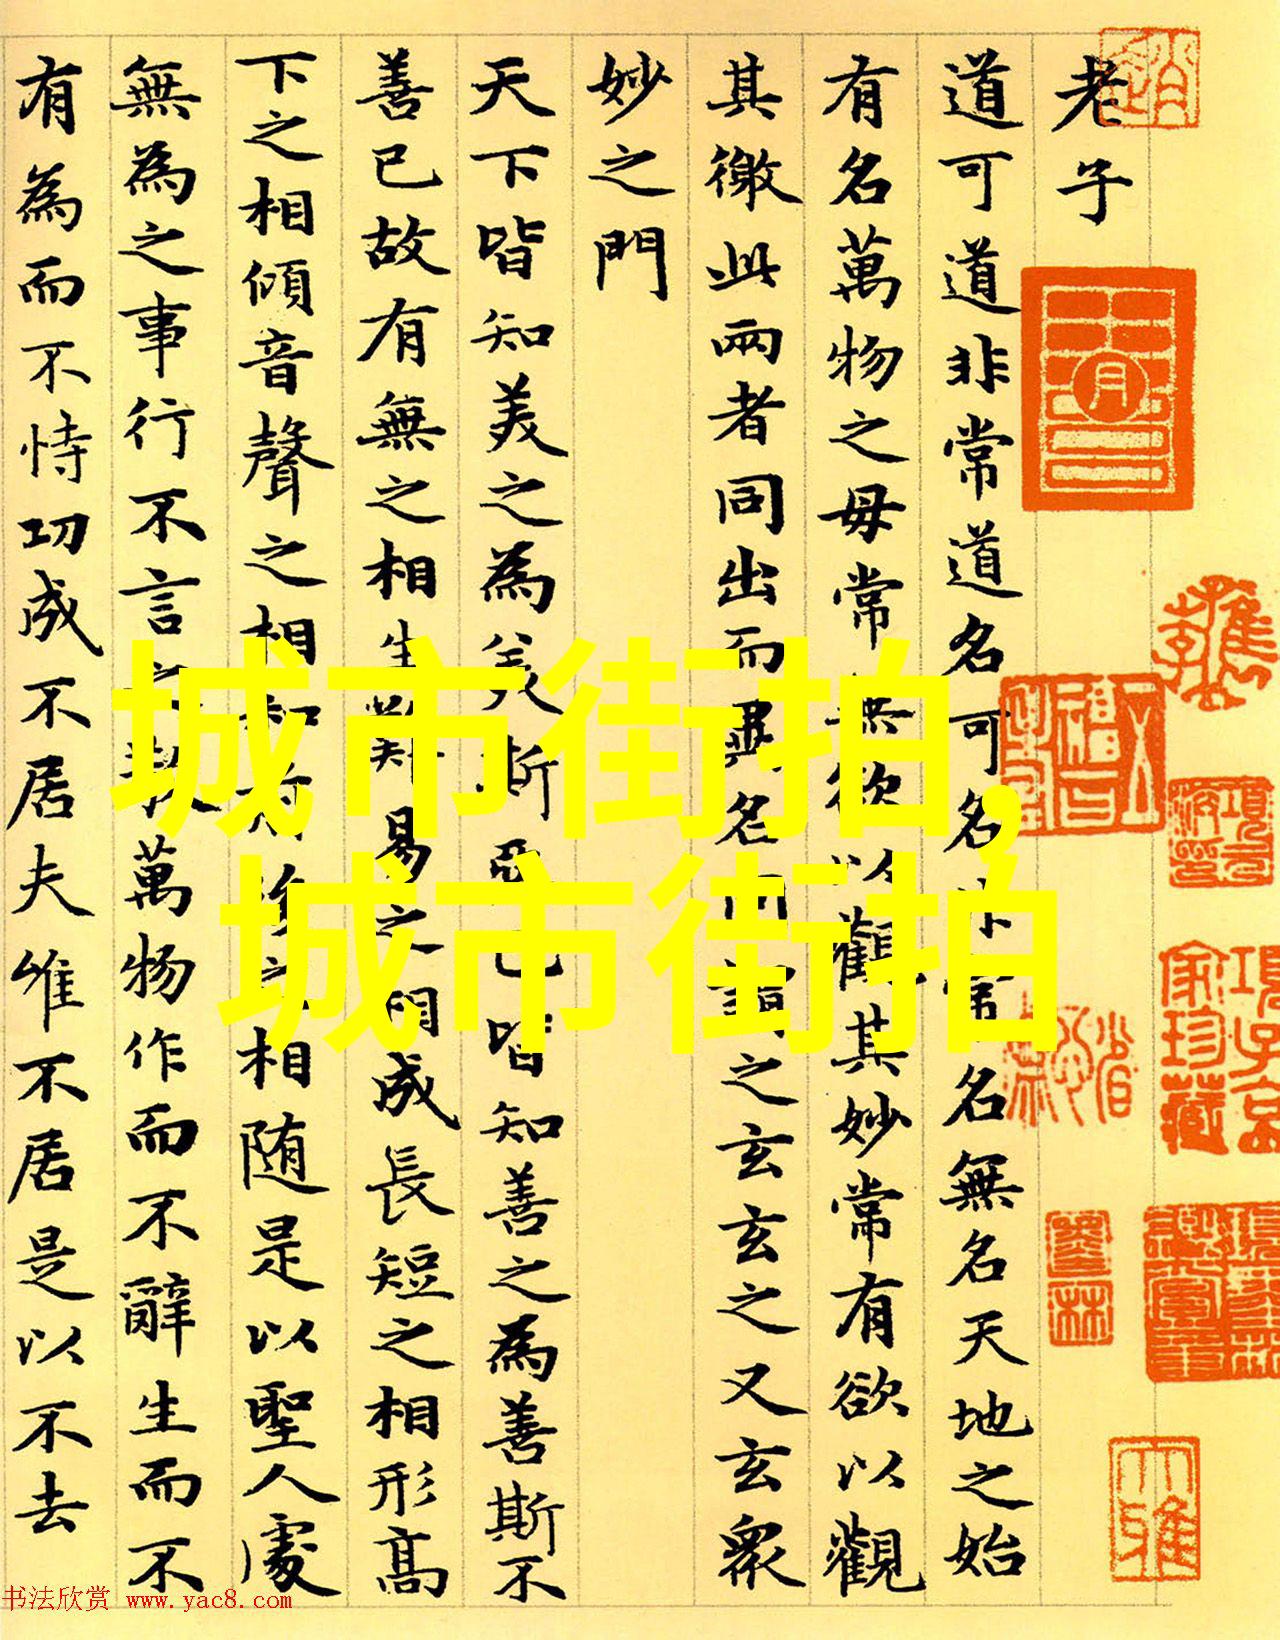 老子
道可道非常道名可名非常名無名天地之始
有名萬物之毋常無欲以觀其妙常有欲以觀
其徼此兩者同出而異名同謂之玄玄之又玄衆
妙之門
天下皆知美之為美斯惡已皆知善之為善斯不
善已故有無之相生難易之相成長短之相形髙
下之相傾音聲之相和前後之相随是以聖人處
無為之事行不言之教萬物作而不辭生而不
有為而不恃功成不居夫唯不居是以不去
城市街拍,
城市街拍
項子京
家珍藏
书法欣赏 www.yac8.com